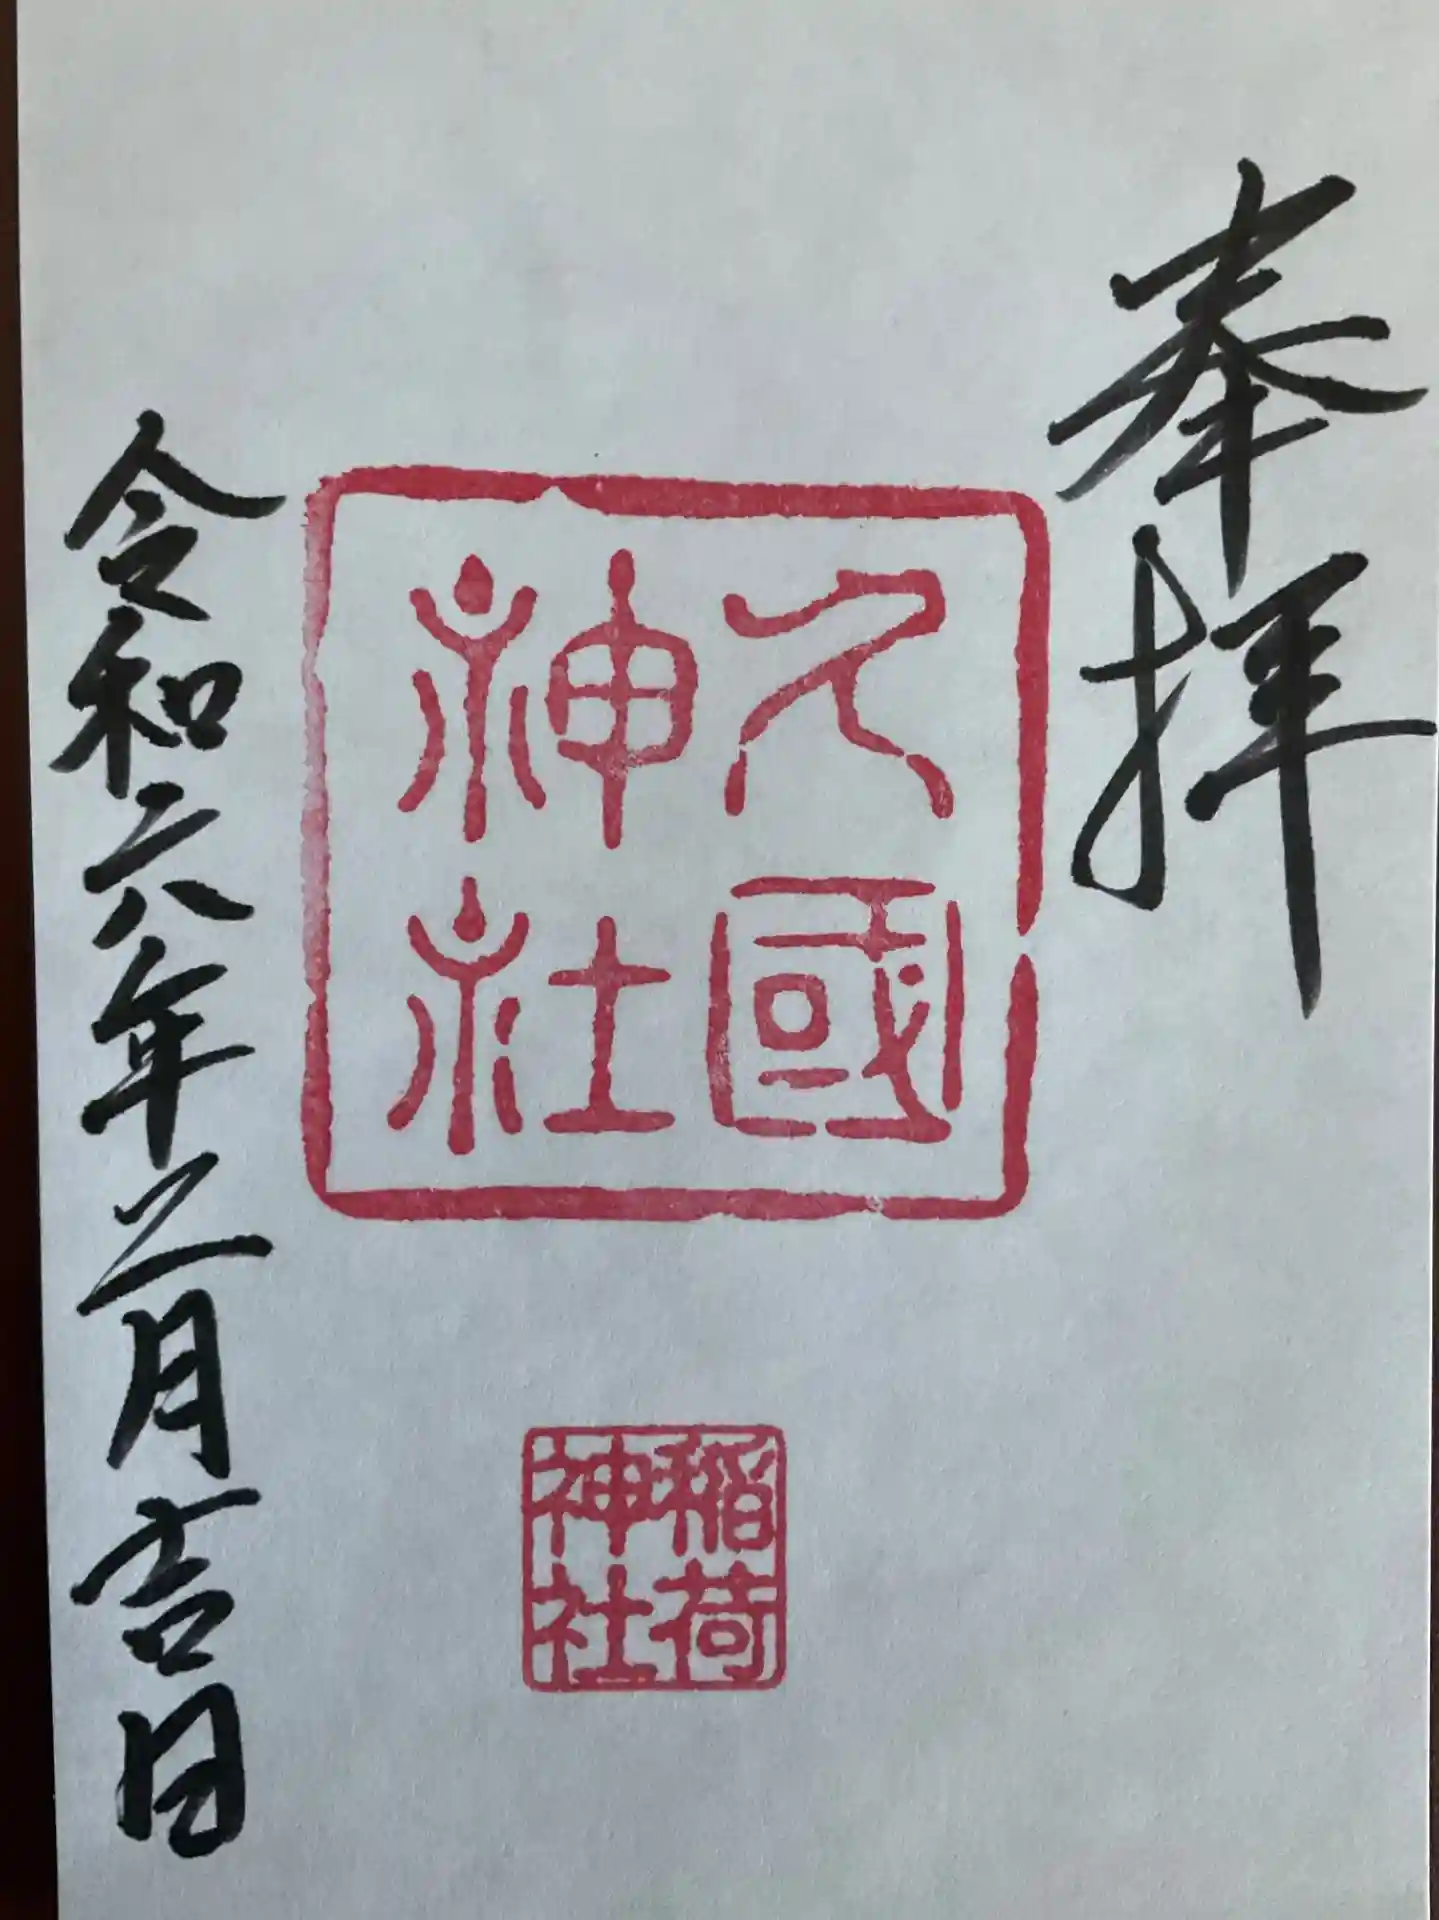 奉拝
久國
神社
稲荷
神社
令和六年二月吉日